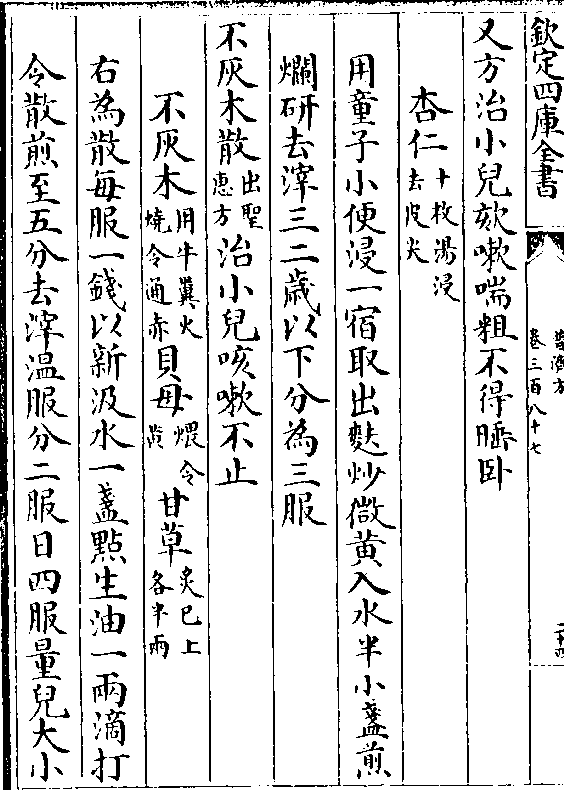 欽定四庫全書
普濟方
卷三百八十七
二十四
又方治小兒欬嗽喘粗不得睡卧
杏仁十枚湯浸去皮尖
用童子小便浸一宿取出麩炒微黄入水半小盞煎
爛研去滓三二歳以下分為三服
不灰木散出聖惠方治小兒咳嗽不止
不灰木用牛糞火燒令通赤貝母煨令黄甘草炙已上各半兩
右為散每服一錢以新汲水一盞點生油一兩滴打
令散煎至五分去滓温服分二服日四服量兒大小